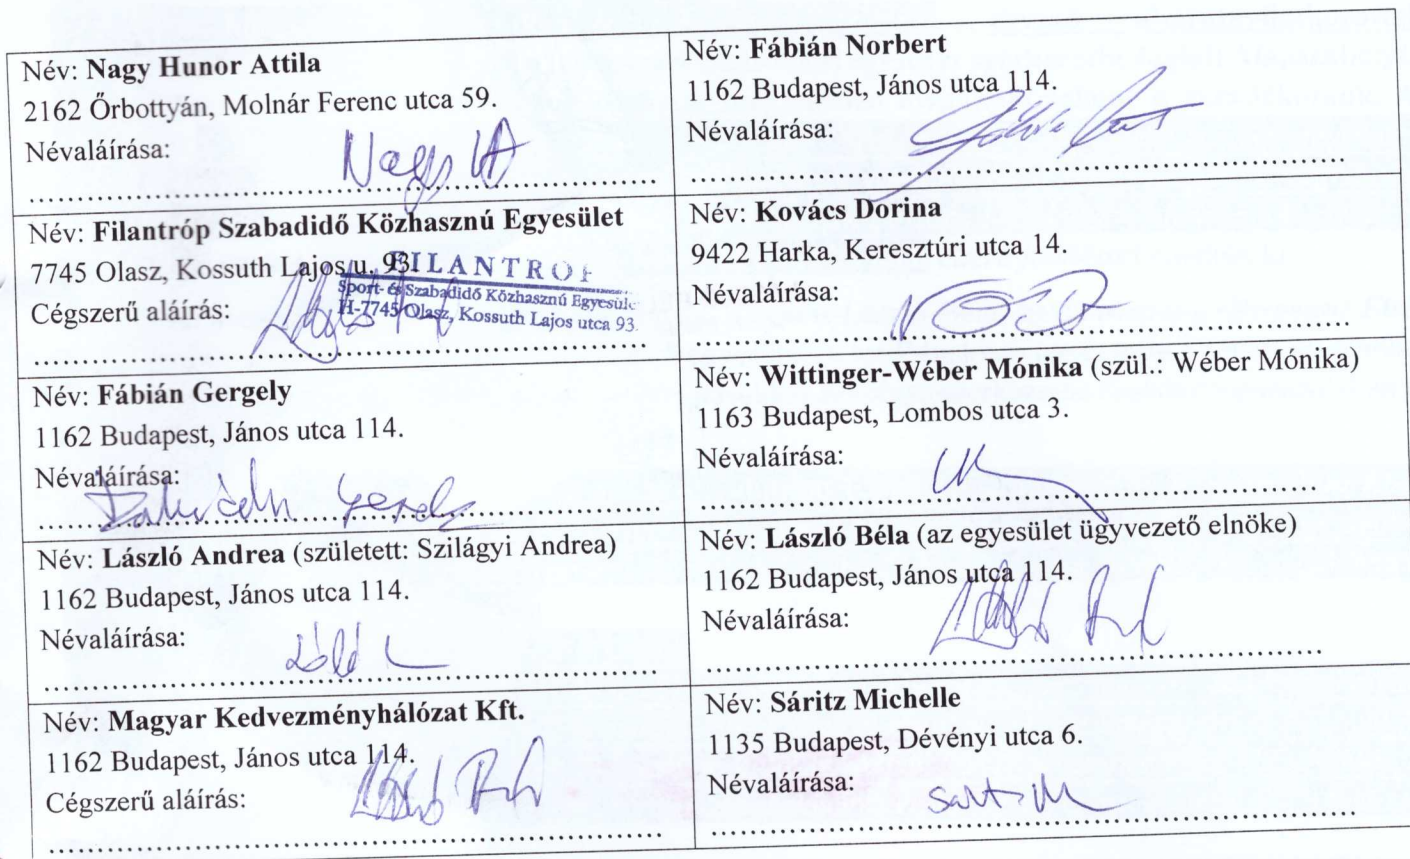 Név: Nagy Hunor Attila
2162 Őrbottyán, Molnár Ferenc utca 59.
Névaláírása:
Nagy HA
Név: Fábián Norbert
1162 Budapest, János utca 114.
Névaláírása:
Név: Filantróp Szabadidő Közhasznú Egyesület
7745 Olasz, Kossuth Lajos u. 93.
Cégszerű aláírás:
FILANTRÓP
Sport- és Szabadidő Közhasznú Egyesület
H-7745 Olasz, Kossuth Lajos utca 93.
Név: Kovács Dorina
9422 Harka, Keresztúri utca 14.
Névaláírása:
Név: Fábián Gergely
1162 Budapest, János utca 114.
Névaláírása:
Név: Wittinger-Wéber Mónika (szül.: Wéber Mónika)
1163 Budapest, Lombos utca 3.
Névaláírása:
Név: László Andrea (született: Szilágyi Andrea)
1162 Budapest, János utca 114.
Névaláírása:
Név: László Béla (az egyesület ügyvezető elnöke)
1162 Budapest, János utca 114.
Névaláírása:
Név: Magyar Kedvezményhálózat Kft.
1162 Budapest, János utca 114.
Cégszerű aláírás:
Név: Sáritz Michelle
1135 Budapest, Dévényi utca 6.
Névaláírása: